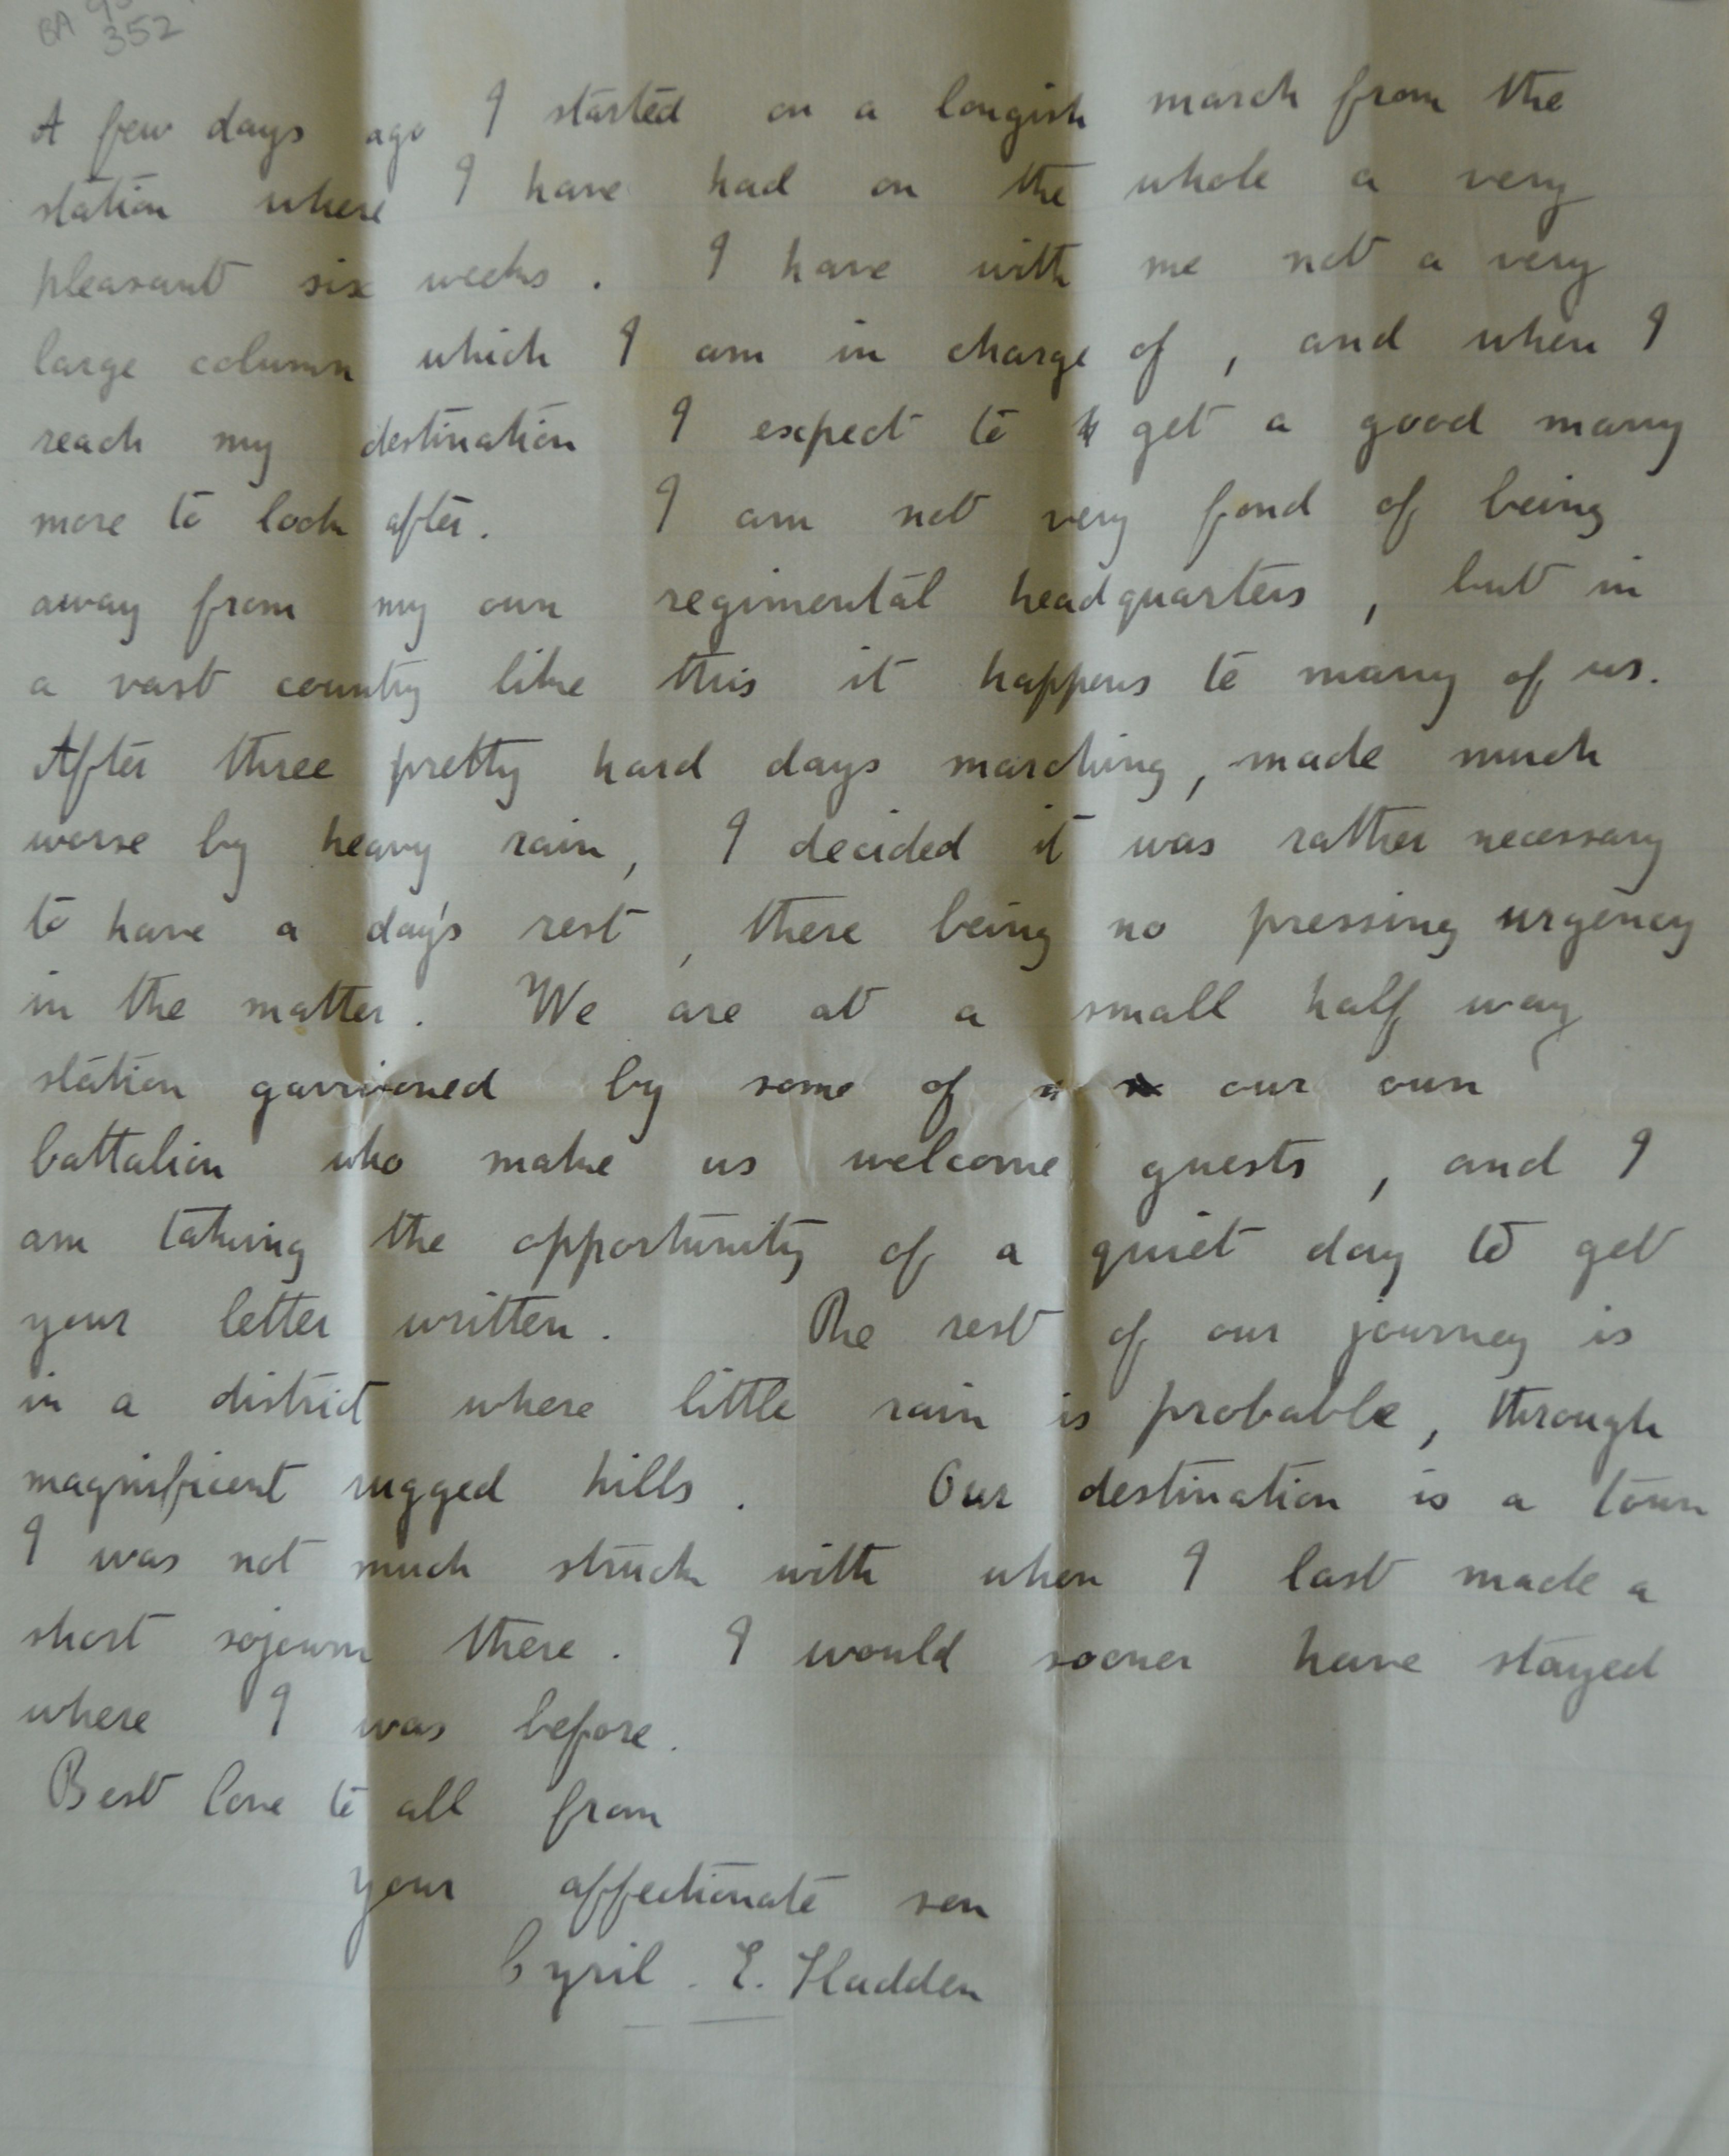 BA 9
352
A few days ago I started on a longish march from the
station where I have had on the whole a very
pleasant six weeks. I have with me not a very
large column which I am in charge of, and when I
reach my destination I expect to get a good many
more to look after. I am not very fond of being
away from my own regimental headquarters, but in
a vast country like this it happens to many of us.
After three pretty hard days marching, made much
worse by heavy rain, I decided it was rather necessary
to have a day's rest, there being no pressing urgency
in the matter. We are at a small half way
station garrisoned by some of our own
battalion who make us welcome guests, and I
am taking the opportunity of a quiet day to get
your letter written. The rest of our journey is
in a district where little rain is probable, through
magnificent rugged hills. Our destination is a town
I was not much struck with when I last made a
short sojourn there. I would sooner have stayed
where I was before.
Best love to all from
your affectionate son
Cyril. E. Hadden